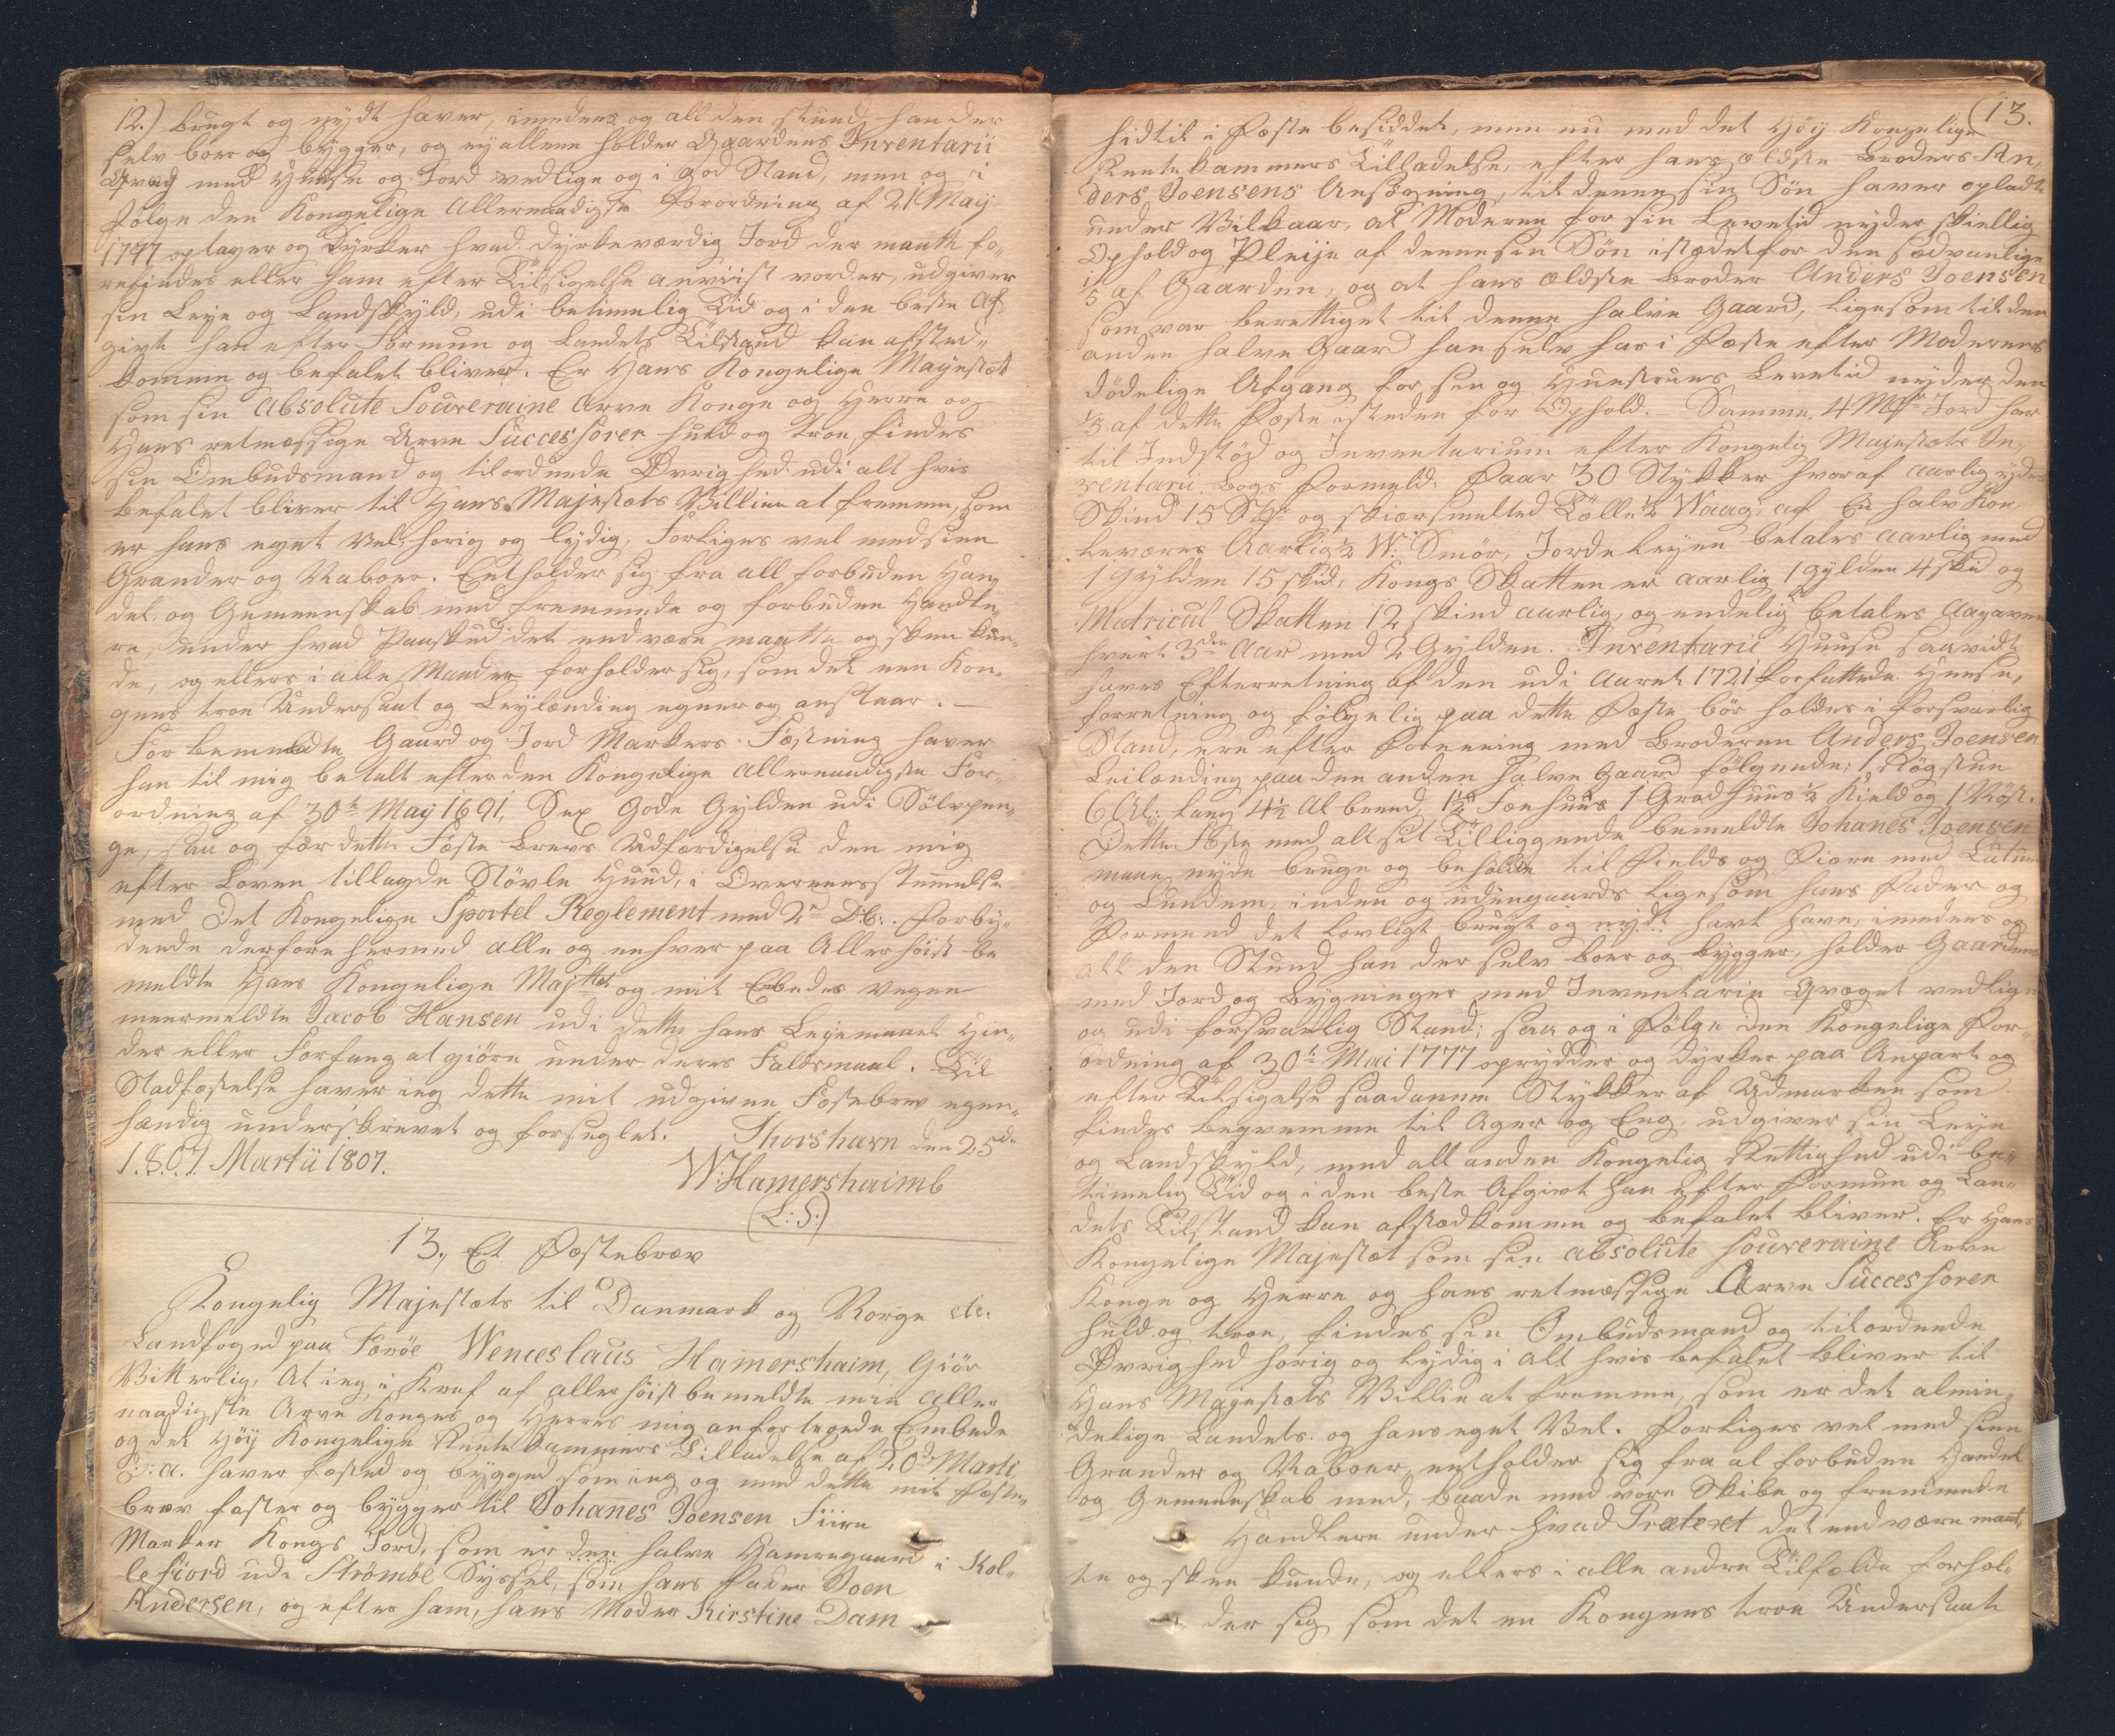 12.) brugt og nydt haver, imedens og all den stund han der
selv boer og bygger, og ey allene holder Gaardens Inventarii
Qvæg med Huuse og Jord vedlige og i god Stand, men og i
følge den Kongelige Allernaadigste Forordning af 21 Maij
1777 optager og dyrker hvad dyrkeværdig Jord der maatte fo-
refindes eller ham efter Tilsigelse anviist vorder, udgiver
sin Leye og Landskyld, udi betimelig Tid og i den beste Af-
givt han efter Formue og Landets Tilstand kan afsted-
komme og befalet bliver. Er Hans Kongelige Mayestæt
som sin absolute Souveraine Arve Konge og Herre og
Hans retmæssige Arve Successorer huld og troe, findes
sin Ombudsmand og tilordnede Øvrighed udi alt hvis
befalet bliver til Hans Majestæts Villie at fremme, som
er hans eget Vel, hørig og lydig, Forliges vel med sine
Grander og Naboer. Entholder sig fra all forbuden Han-
del og Gemeenskab med fremmede og forbuden Handle-
re, under hvad Paaskud det end være maatte og skee kun-
de, og ellers i alle Maader forholder sig, som det een Kon-
gens troe Undersaat og Leylænding egner og anstaar. —
For bemeldte Gaard og Jord Markers Fæstning haver
han til mig betalt efter den Kongelige allernaadigste For-
ordning af 30te May 1691, Sex Gode Gylden udi Sølvpen-
ge, saa og for dette Fæste Brevs Udfærdigelse den mig
efter Loven tillagde Støvle Huud, i Overeensstemmelse
med Det Kongelige Sportel Reglement med 2de Db:. Forby-
dende derfore hermed alle og enhver paa Allerhøist be
meldte Hans Kongelige Majttet og mit Embedes vegne
meermeldte Jacob Hansen udi dette hans Leyemaal Hin-
der eller Forfang at giøre under deres Faldsmaal. Til
Stadfæstelse haver ieg dette mit udgivne Fæstebrev egen-
hændig underskrevet og forseglet. Thorshavn den 25de
1.8.0.7. Martii 1807.
W: Hamershaimb
(L: S:)
13., Et Fæstebrev
Kongelig Majestæts til Danmark og Norge etc.
Landfoged paa Færöe Wenceslaus Hamershaim, Giör
Vitterlig, At ieg i Kraf af allerhöist bemeldte min Aller
naadigste Arve Konges og Herres mig anfortroede Embede
og det Höy Kongelige Rente Kammers Tilladelse af 20de Marti
d: a. haver fæsted og bygged som ieg og med dette mit Fæste-
brev fæster og bygger til Johanes Joensen Fiire
Marker Kongs Jord, som er den halve Hamregaard i Kol-
lefiord udi Strömöe Syssel, som hans Fader Joen
Andersen, og efter ham, hans Moder Kirstine Dam
13.
hidtil i Fæste besiddet, men nu med det Höy Kongelige
Rentekammers Tilladelse, efter hans ældste Broders An-
ders Joensens Ansögning, til denne sin Sön haver opladt
under Vilkaar, at Moderen for sin Levetid nyder skiellig
Ophold og Pleije af denne sin Sön istædet for den sædvanlige
1/5 af Gaarden, og at hans ældste Broder Anders Joensen
som var berettiget til denne halve Gaard, ligesom til den
anden halve Gaard han selv har i Fæste efter Moderens
dödelige Afgang for sin og Huustrues Levetid nyder den
1/5 af dette Fæste isteden for Ophold. — Samme 4 Mkr Jord har
til Indstöd og Inventarium efter Kongelig Majestæts In-
ventarii Bogs Formeld: Faar 30 Stykker hvoraf aarlig ydes
Skind 15 Stk og skiærsmelted Tölle ½ Waag: af En halv Koe
leveres Aarlig ½ W: Smör, Jordeleyen betales aarlig med
1 Gylden 15 skid, Kongs Skatten er aarlig 1 gylden 4 skid og
Matricul Skatten 12 skind aarlig, og endelig betales Aagaven
hvert 3die Aar med 2 Gylden. Inventarii Huuse saavidt
haves Efterretning af den udi Aaret 1721 forfattede Huuse-
forretning og fölgelig paa dette Fæste bör holdes i forsvarlig
Stand, ere efter Forening med Broderen Anders Joensen
Leilænding paa den anden halve Gaard fölgende: 1 Rögstue
6 Al: lang 4½ Al breed, 1½ Fæehuus 1 Gradhuus ½ Kield og 1 Nöst.
Dette Fæste med alt sit Tilliggende bemeldte Johanes Joensen
maae nyde bruge og beholde til Fields og Fiære med Lutum
og Lundem, inden og udengaards ligesom hans Fader og
Formend det lovligt brugt og nydt havt have, imedens og
all den Stund han der selv boer og bygger, holder Gaarden
med Jord og Bygninger med Inventarie Qvæget vedlige
og udi forsvarlig Stand; saa og i Fölge den Kongelige For-
ordning af 30te Mai 1777 oprydder og dyrker paa Anpart og
efter Tilsigelse saadanne Stykker af Udmarken som
findes beqvemme til Ager og Eng, udgiver sin Leye
og Landskyld, med all anden Kongelig Rettighed udi be-
timelig Tid og i den beste Afgivt han efter Formue og Lan-
dets Tilstand kan afstædkomme og befalet bliver. Er Hans
Kongelige Majestæt som sin absolute souveraine Arve
Konge og Herre og hans retmæssige Arve Successorer
huld og troe, findes sin Ombudsmand og tilordnede
Øvrighed hörig og lydig i Alt hvis befalet bliver til
Hans Majestæts Villie at fremme, som er det almin-
delige Landets og hans eget Vel. Forliges vel med sine
Grander og Naboer, entholder sig fra al forbuden Handel
og Gemeenskab med, baade med vore Skibe og fremmede
Handlere under hvad Prætext det end være maat-
te og skee kunde, og ellers i alle andre Tilfælde forhol-
der sig som det en Kongens troe Undersaat